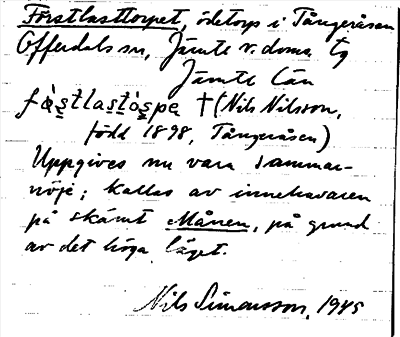 Forstlasttorpet, ödetorp i Tångeråsen
Offerdals sn, Jämtl. v. doms. tg
Jämtl. Län
fɷ̀s̭tlas̭tòs̭pe † (Nils Nilsson,
född 1898, Tångeråsen)
Uppgives nu vara sommar-
nöje; kallas av innehavaren
på skämt Månen, på grund
av det höga läget.
Nils Simonsson, 1945